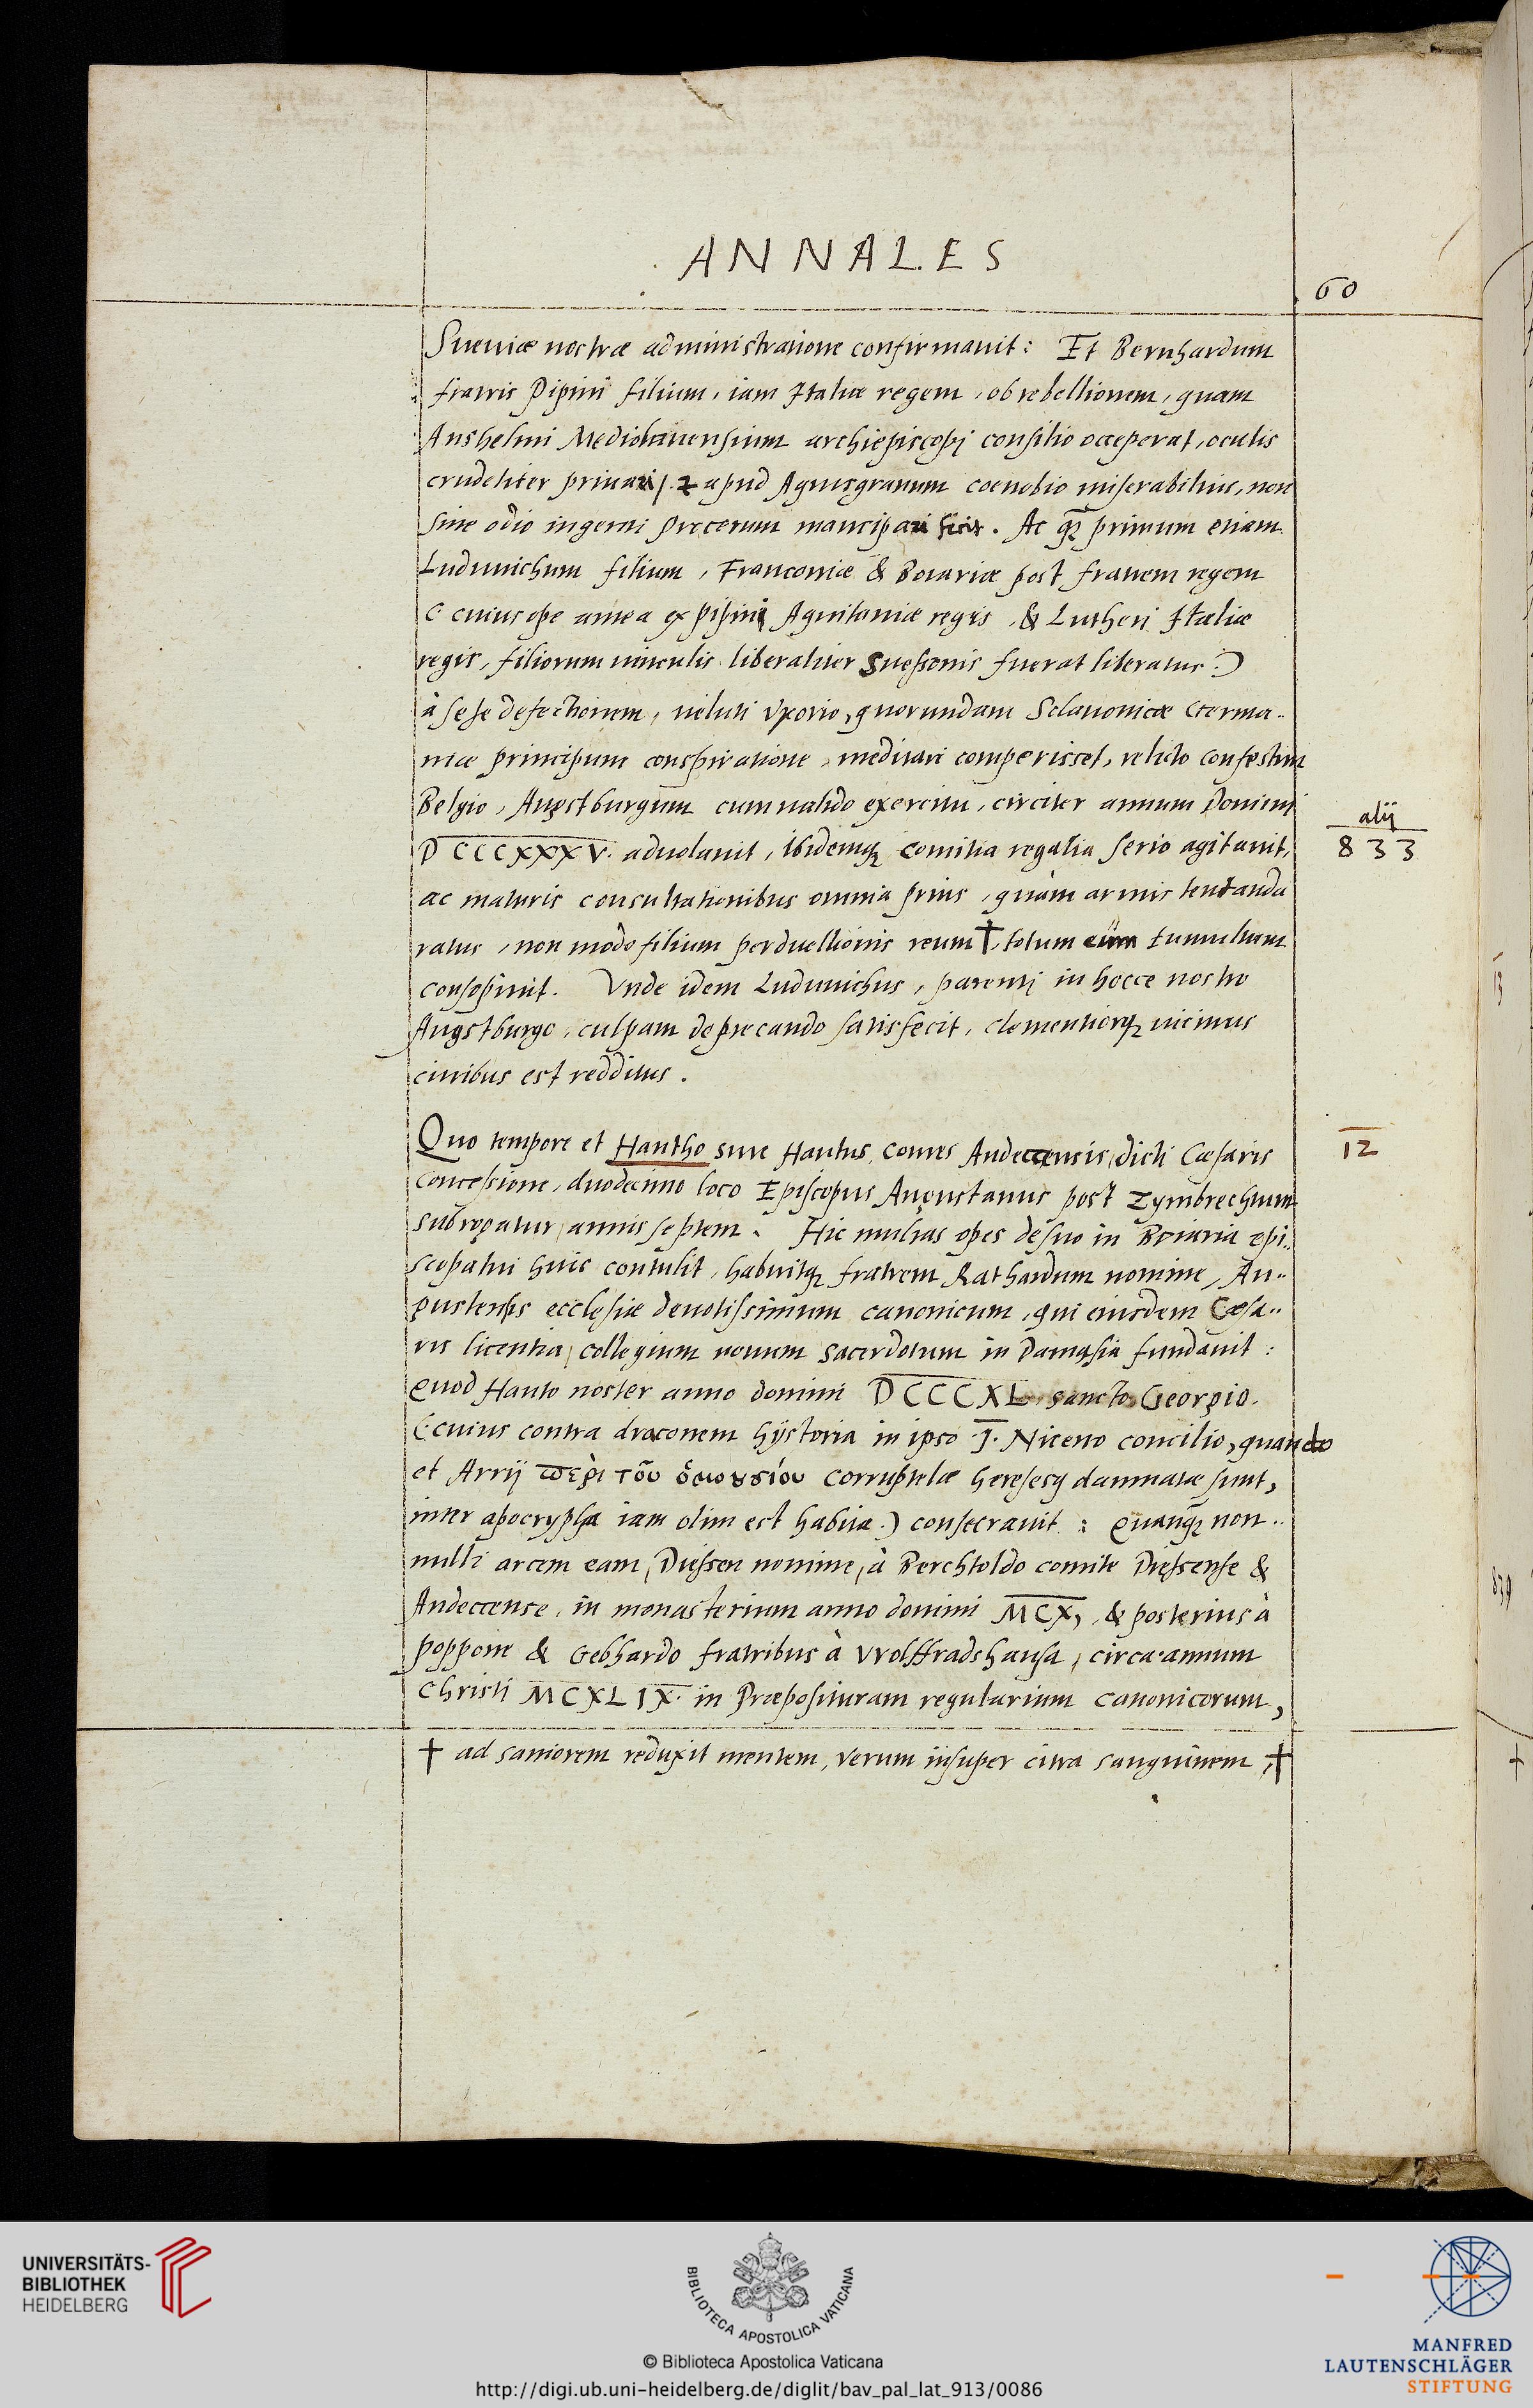 ANNALES
60
Sueuiæ nostræ administratione confirmauit: Et Bernhardum
fratris Pipini filium, iam Italiæ regem, ob rebellionem, quam
Anshelmi Mediolanensium archiepiscopi consilio occeperat, oculis
crudeliter priuari, & apud Aquisgranum coenobio miserabilius, non
sine odio ingenti procerum mancipari fecit. Ac qȝ primum etiam
Luduuichum filium, Franconiæ & Boiariæ post fratrem regem
(cuius ope antea ex Pipini Aquitaniæ regis, & Lutheri Italiæ
regis, filiorum uinculis liberaliter Suessonis fuerat liberatus.)
à sese defectionem, ueluti Vxorio, quorundam Sclauonicæ Germa..
niæ principum conspiratione, meditari comperisset, relicto confestim
Belgio, Augstburgum cum ualido exercitu, circiter annum Domini
DCCCXXXV. aduolauit, ibidemqȝ comitia regalia serio agitauit,
alij
833
ac maturis consultationibus omnia prius, quàm armis tentanda
ratus, non modo filium perduellionis reum †, totum eum tumultum
consopiuit. Vnde idem Luduuichus, parenti in hocce nostro
Augstburgo, culpam deprecando satisfecit, clementiorqȝ uicinus
ciuibus est redditus.
Quo tempore et Hantho siue Hantus, comes Andeccensis, dicti Cæsaris
12
concessione, duodecimo loco Episcopus Augustanus post Zymbrechtum
subrogatur, annis septem. Hic multas opes de suo in Boiaria epi..
scopatui huic contulit, habuitqȝ fratrem Rathardum nomine, Au..
gustensis ecclesiæ deuotissimum canonicum, qui eiusdem Cæsa..
ris licentia, collegium nouum sacerdotum in Damasia fundauit:
Quod Hanto noster anno domini DCCCXL sancto Georgio.
(cuius contra draconem hystoria in ipso I. Niceno concilio, quando
et Arrij περὶ τοῦ ὁμουσίου corruptelæ heresesqȝ damnatæ sunt,
inter apocrypha iam olim est habita.) consecrauit: Quanqȝ non..
nulli arcem eam, Diessen nomine, à Berchtoldo comite Diessense &
Andeccense, in monasterium anno domini MCX, & posterius à
Poppone & Gebhardo fratribus à VVolffradshausa, circa annum
Christi MCXLIX. in Præposituram regularium canonicorum,
† ad saniorem reduxit mentem, verum insuper citra sanguinem, †
839
UNIVERSITÄTS-
BIBLIOTHEK
HEIDELBERG
BIBLIOTECA APOSTOLICA VATICANA
© Biblioteca Apostolica Vaticana
http://digi.ub.uni-heidelberg.de/diglit/bav_pal_lat_913/0086
MANFRED
LAUTENSCHLÄGER
STIFTUNG